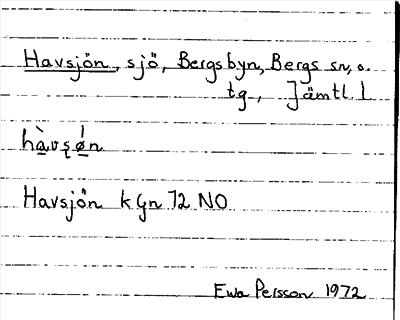 Havsjön, sjö, Bergsbyn, Bergs sn, o.
tg., Jämtl. l
Havsjön k Gn 72 NO
Ewa Persson 1972